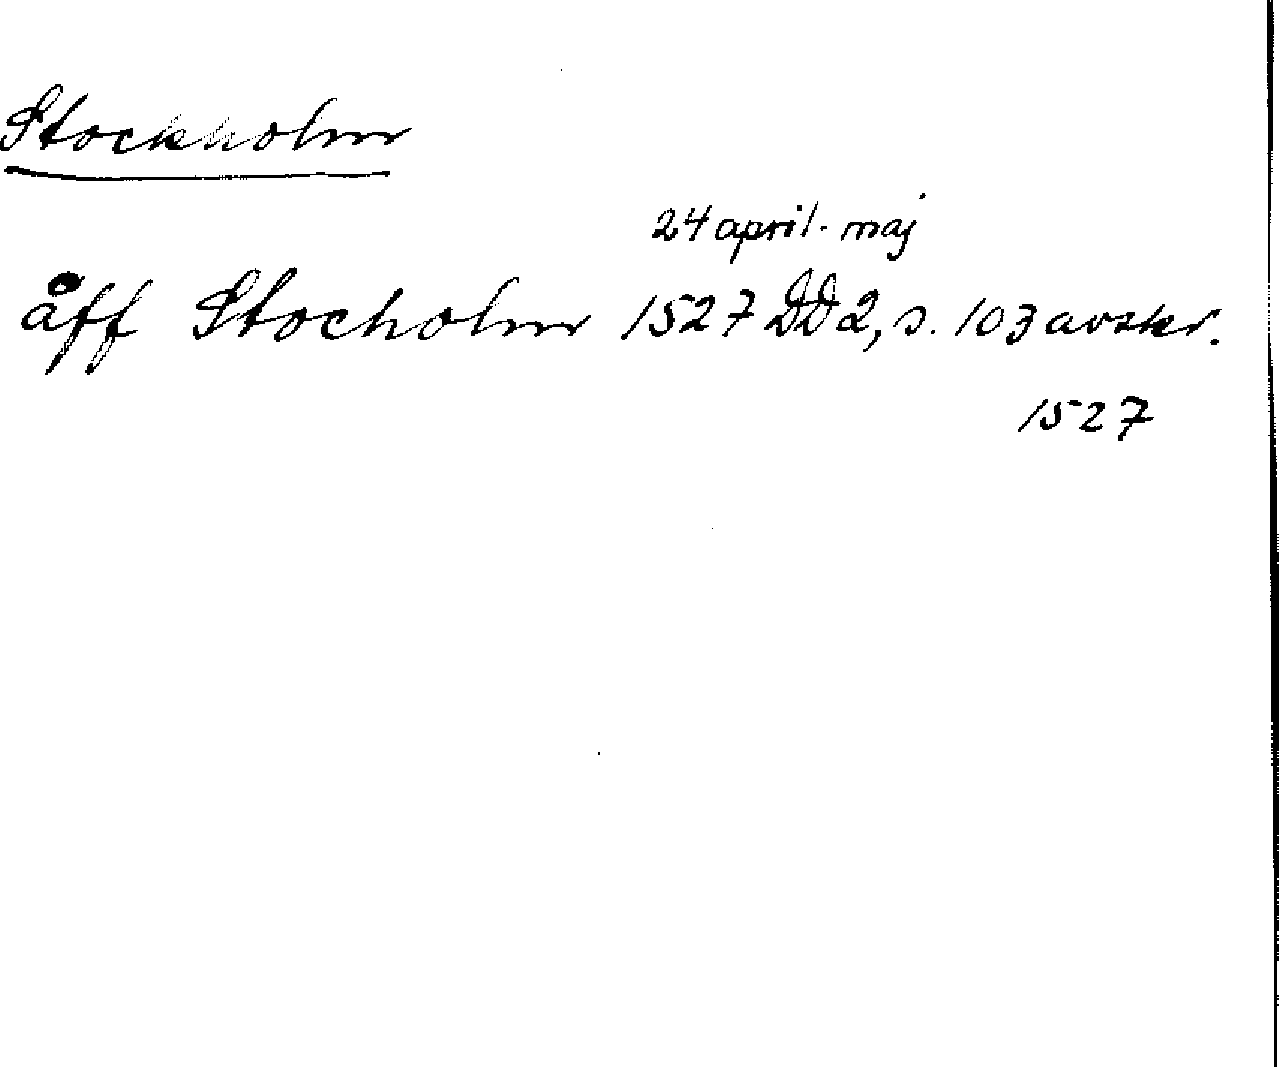 Stockholm
24 april - maj
åff Stocholm 1527 DD2, s. 103 avskr.
1527